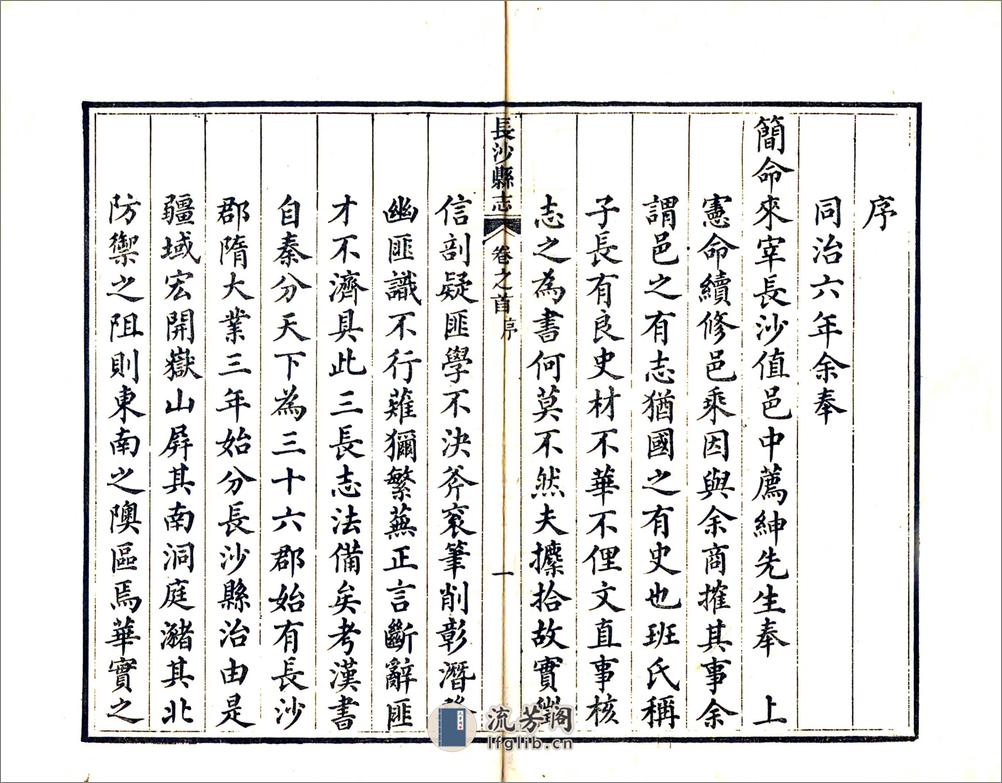 序
同治六年余奉
簡命來宰長沙值邑中薦紳先生奉 上
憲命續修邑乘因與余商搉其事余
謂邑之有志猶國之有史也班氏稱
子長有良史材不華不俚文直事核
志之為書何莫不然夫攈拾故實
長沙縣志 卷之首 序 一
信剖疑匪學不決斧袞筆削彰潛
幽匪識不行薙獮繁蕪正言斷辭匪
才不濟具此三長志法備矣考漢書
自秦分天下為三十六郡始有長沙
郡隋大業三年始分長沙縣治由是
疆域宏開嶽山屏其南洞庭瀦其北
防禦之阻則東南之隩區焉華實之
流芳閣
lfglib.cn